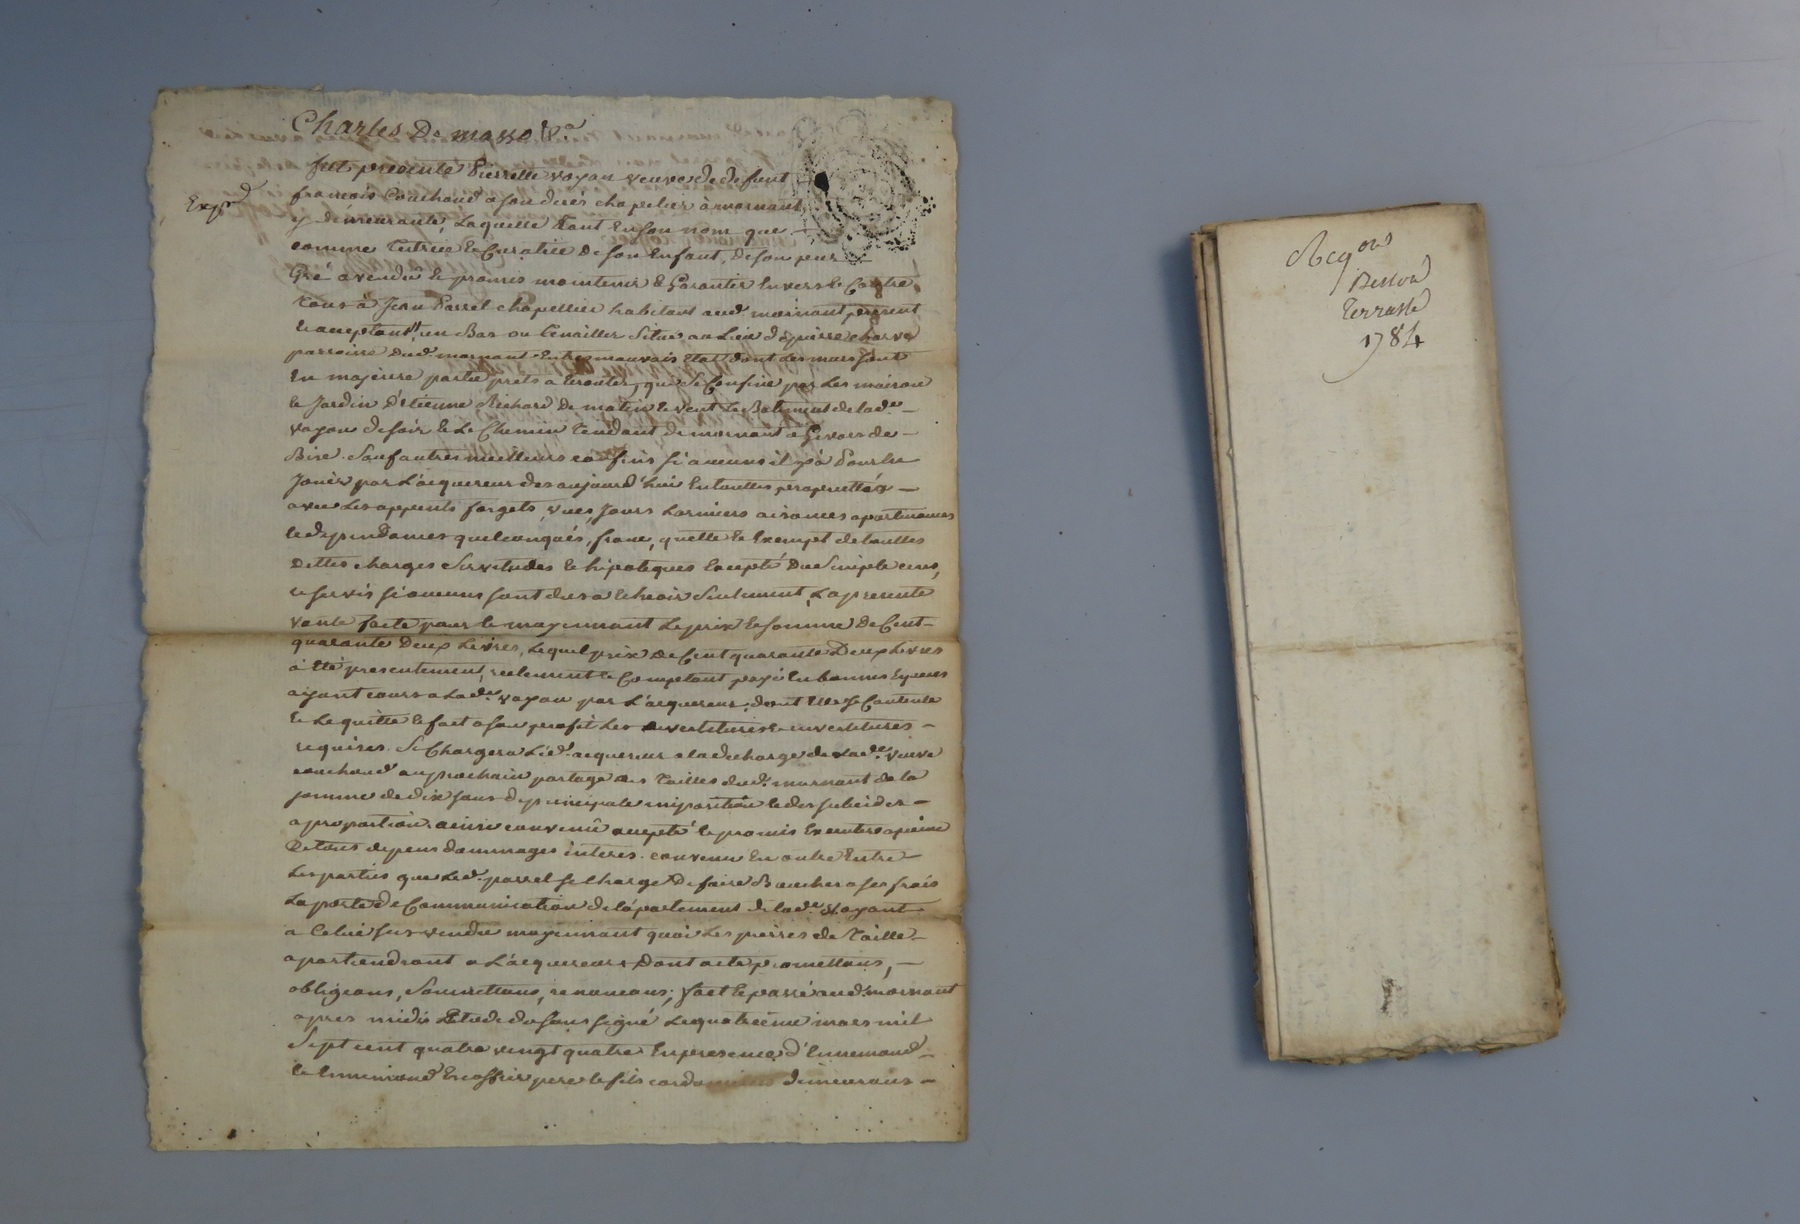 Charles De masso &c.a
fut presente Pierrette voyan veuve de deffunt
françois Couchoud a son deces chapelier à mornant
Exp.d
y demeurante, Laquelle tant En son nom que
comme tutrice Et Curatrice De son Enfant, De son peur
Gré a vendu Et promis maintenir & Garantir Envers Et Contre
tous à Jean Parret chapellier habitant aud. mornant present
Et acceptant un Bas ou Cenailler Situé au Lieu de pierre
parroisse Dud. mornant En tres mauvais Etat dont Les murs sont
En majeure partie prets a Ecrouler, que Se Confine par Les maison
Et Jardin D'Etienne Richard De matin Et vent Le Batiment de lad.e
voyan de soir Et Le Chemin tendant de mornant a Givors de
Bise. Sauf autres meilleurs confins si aucuns il y a Pour En
Jouir par L'acquereur des aujourd'huis En touttes proprietés
avec Les appents forgets, vues, Jours Larmiers aisances apartenances
Et dependances quelconques, franc, quitte Et Exempt de touttes
Dettes charges Servitudes Et hipoteques Excepté Du Simple cens,
Et servis si aucuns sont dus a Echeoir Seulement, La presente
vante faite pour Et moyennant Le prix Et somme De Cent
quarante Deux Livres, Lequel prix De Cent quarante Deux Livres
à Eté presentement, reelement Et Comptant payé En bonnes Especes
ayant cours a Lad.e voyan par L'acquereur, dont Elle Se Contente
Et Le quitte Et fait a son profit Les devestitures Et investitures
requises. Se Chargera Led. acquereur a la decharge de Lad.e veuve
couchoud au prochain partage des Tailles dud. mornant de la
somme de dix sous de principale imposition Et des subsides
a proportion ainsi convenu accepté Et promis Executer a peine
De tous depens dommages interes. convenu En outre Entre
Les parties que Led. parret Se Charge De faire Boucher a ses frais
La porte de Communication de l'apartement de lad.e voyant
a Celui sus vendu moyennant quoi Les pierres de Taille
apartiendront a L'acquereur Dont acte promettans,
obligeans, Soumettans, renonceans; fait Et passé aud. mornant
apres midis Etude du soussigné Le quatrieme mars mil
Sept cent quatre vingt quatre En presence d'Ennemond
Et Ennemond pere Et fils demeurans
acq.on
Besson
Terrasse
1784